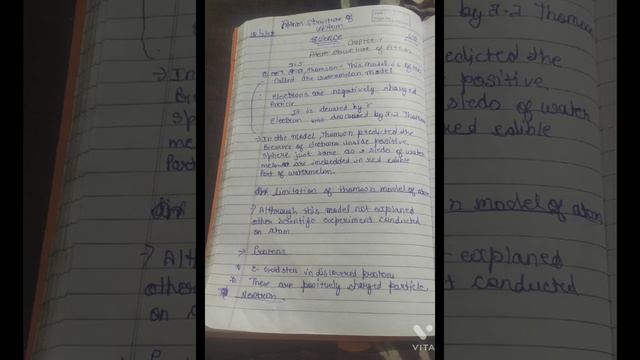 Atom Structure of
Atom
Science
Chapter-4
Atom Structure of Atom
J.J. Thomson - This model is
called the watermelon model
Electrons are negatively charged
Particle.
It is denoted by
Electron was discovered by J.J Thomson
→ In the model, Thomson predicted the
Presence of electrons inside positive
sphere just same as a
melon are imbedded in red edible
Part of watermelon.
limitation of thomson model of atom
Although this model not explaned
other scientific experiment conducted
on atom
→ Protons
E- Goldstein discovered protons
These are positively charged particle
Neutron
VITA
by J.J Thomson
edicted the
positive
of water
red edible
n model of atom
explaned
t conducted
→ In
sph
mel
Part
Alt
othe
on